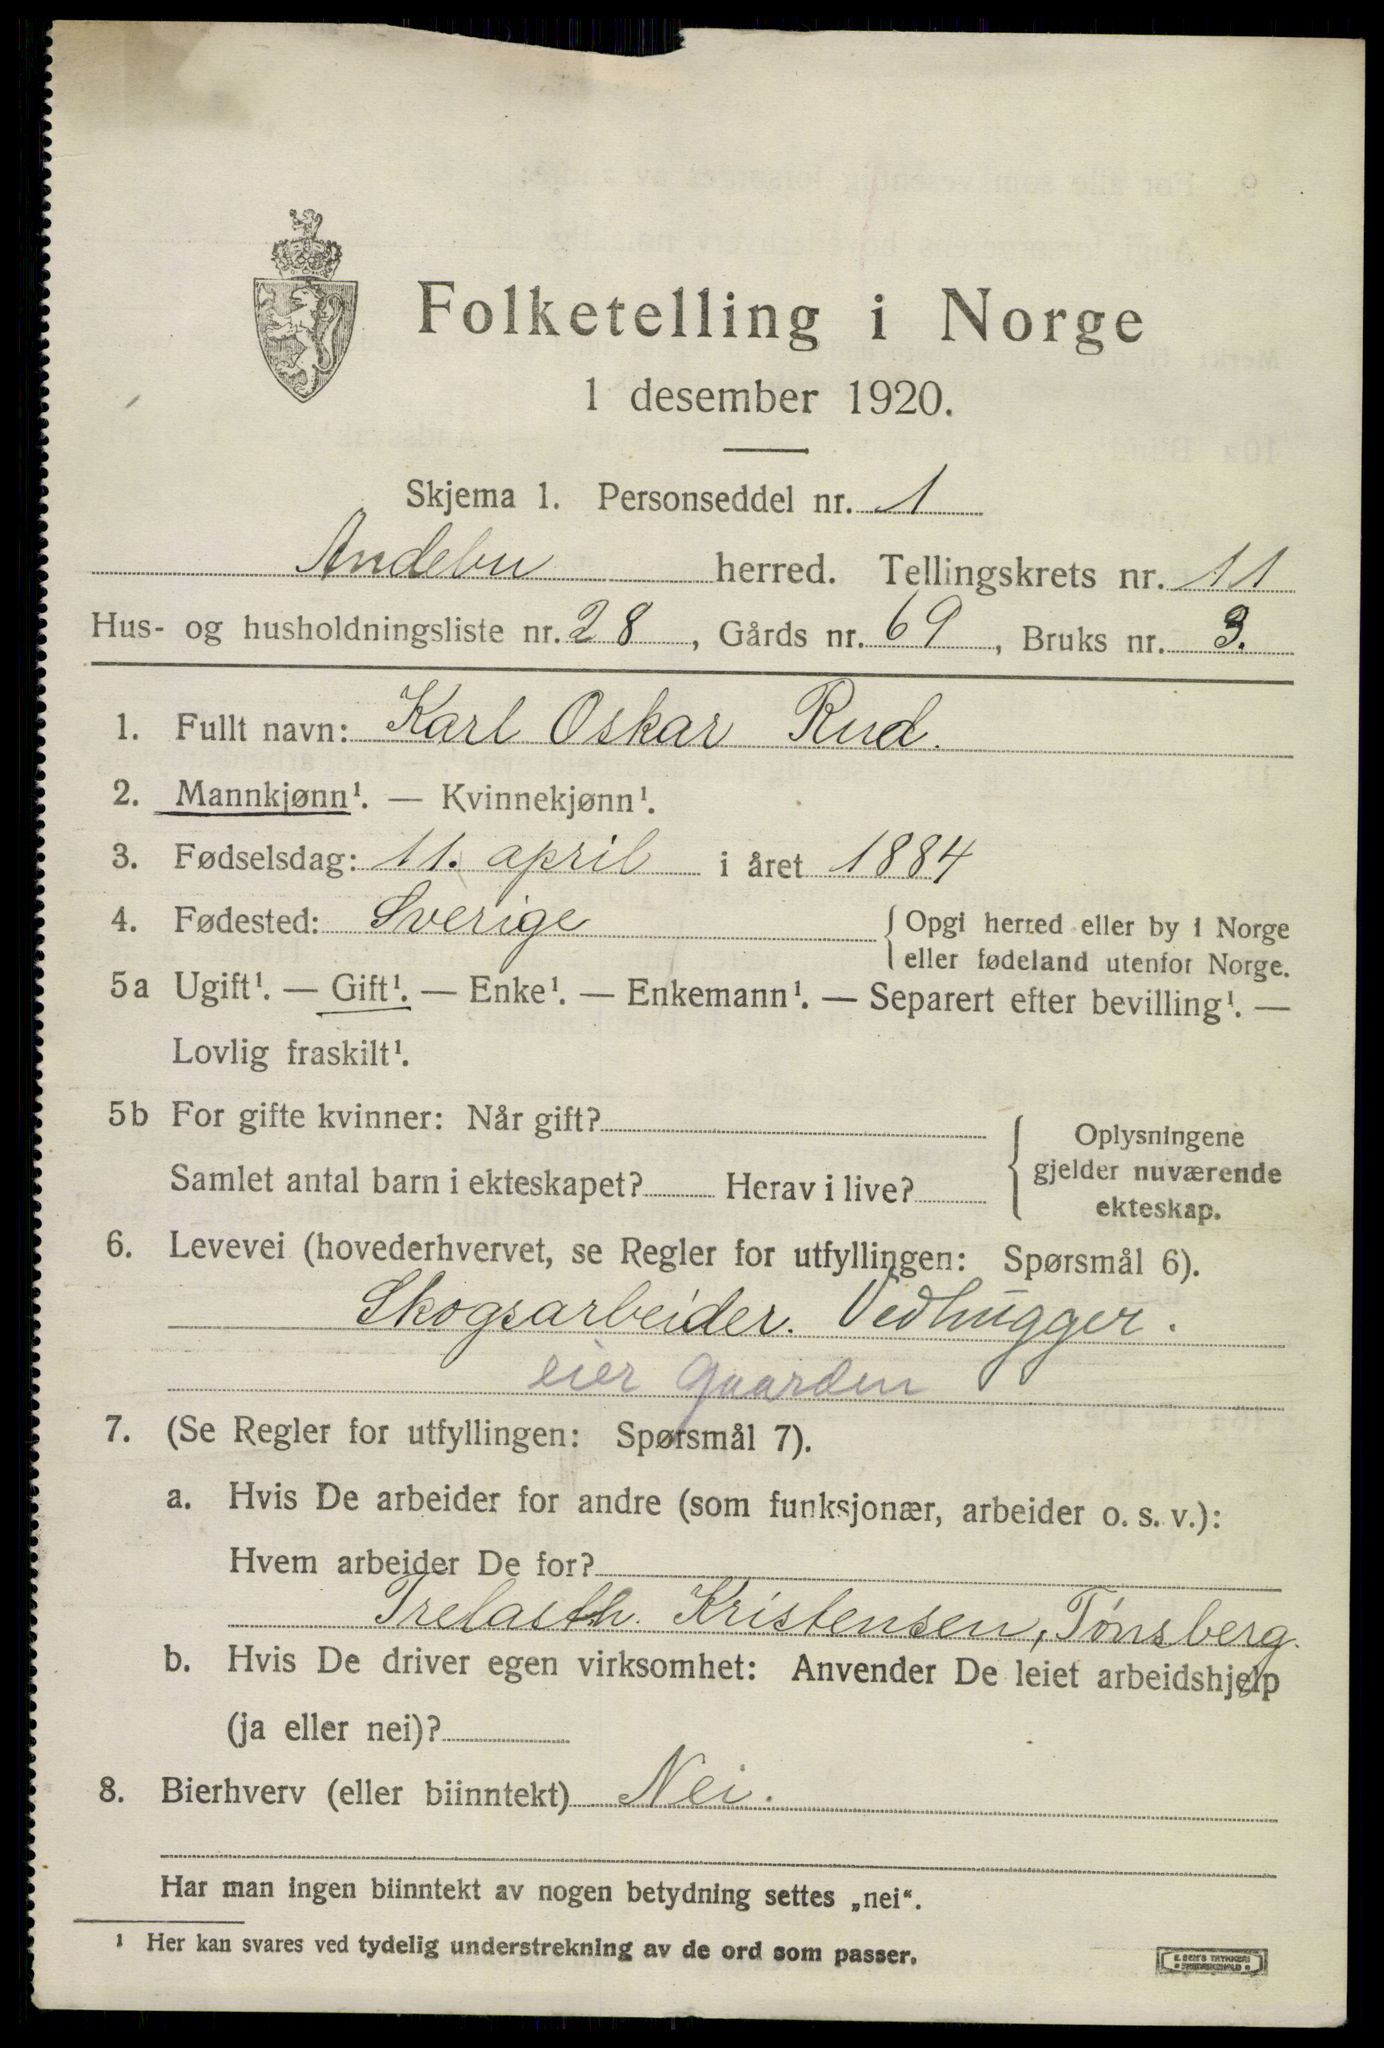 Folketelling i Norge
1 desember 1920.
Skjema 1. Personseddel nr. 1
Andebu herred. Tellingskrets nr. 11
Hus- og husholdningsliste nr. 28, Gårds nr. 69, Bruks nr. 3.
1. Fullt navn: Karl Oskar Rud.
2. Mannkjønn¹. — Kvinnekjønn¹.
3. Fødselsdag: 11. april i året 1884
4. Fødested: Sverige { Opgi herred eller by i Norge
eller fødeland utenfor Norge.
5a Ugift¹. — Gift¹. — Enke¹. — Enkemann¹. — Separert efter bevilling¹. —
Lovlig fraskilt¹.
5b For gifte kvinner: Når gift?
Samlet antal barn i ekteskapet? Herav i live?
{ Oplysningene
gjelder nuværende
ekteskap.
6. Levevei (hovederhvervet, se Regler for utfyllingen: Spørsmål 6).
Skogsarbeider. Vedhugger.
eier gaarden
7. (Se Regler for utfyllingen: Spørsmål 7).
a. Hvis De arbeider for andre (som funksjonær, arbeider o. s. v.):
Hvem arbeider De for?
Trelasth. Kristensen, Tønsberg.
b. Hvis De driver egen virksomhet: Anvender De leiet arbeidshjelp
(ja eller nei)?
8. Bierhverv (eller biinntekt) Nei.
Har man ingen biinntekt av nogen betydning settes „nei“.
¹ Her kan svares ved tydelig understrekning av de ord som passer.